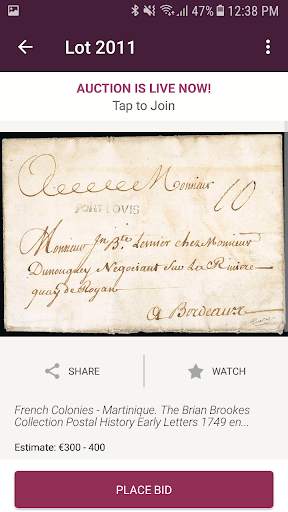 47% 12:38 PM
Lot 2011
AUCTION IS LIVE NOW!
Tap to Join
Monsieur
10
PORT LOVIS
Monsieur Jn Bte Lernier chez Monsieur
Dunouguez Negotiant Sur La Riviere
quay de Royan
a Bordeaux
SHARE
WATCH
French Colonies - Martinique. The Brian Brookes
Collection Postal History Early Letters 1749 en...
Estimate: €300 - 400
PLACE BID